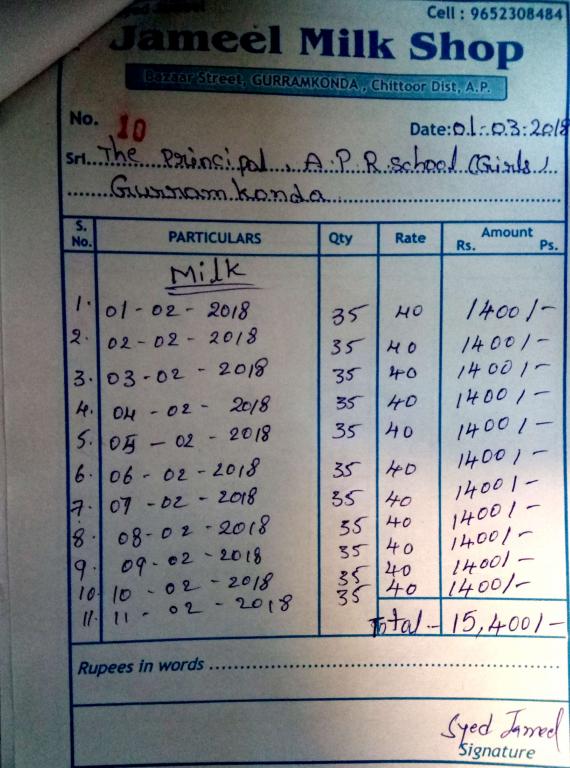 Cell : 9652308484
Jameel Milk Shop
Bazaar Street, GURRAMKONDA, Chittoor Dist, A.P.
No. 10 Date: 01-03-2018
Sri. The Principal, A.P.R School (Girls)
Gurramkonda
S. No. PARTICULARS Qty Rate Amount Rs. Ps.
Milk
1. 01-02-2018 35 40 1400/-
2. 02-02-2018 35 40 1400/-
3. 03-02-2018 35 40 1400/-
4. 04-02-2018 35 40 1400/-
5. 05-02-2018 35 40 1400/-
6. 06-02-2018 35 40 1400/-
7. 07-02-2018 35 40 1400/-
8. 08-02-2018 35 40 1400/-
9. 09-02-2018 35 40 1400/-
10. 10-02-2018 35 40 1400/-
11. 11-02-2018 35 40 1400/-
Total- 15,400/-
Rupees in words
Syed Jameel
Signature